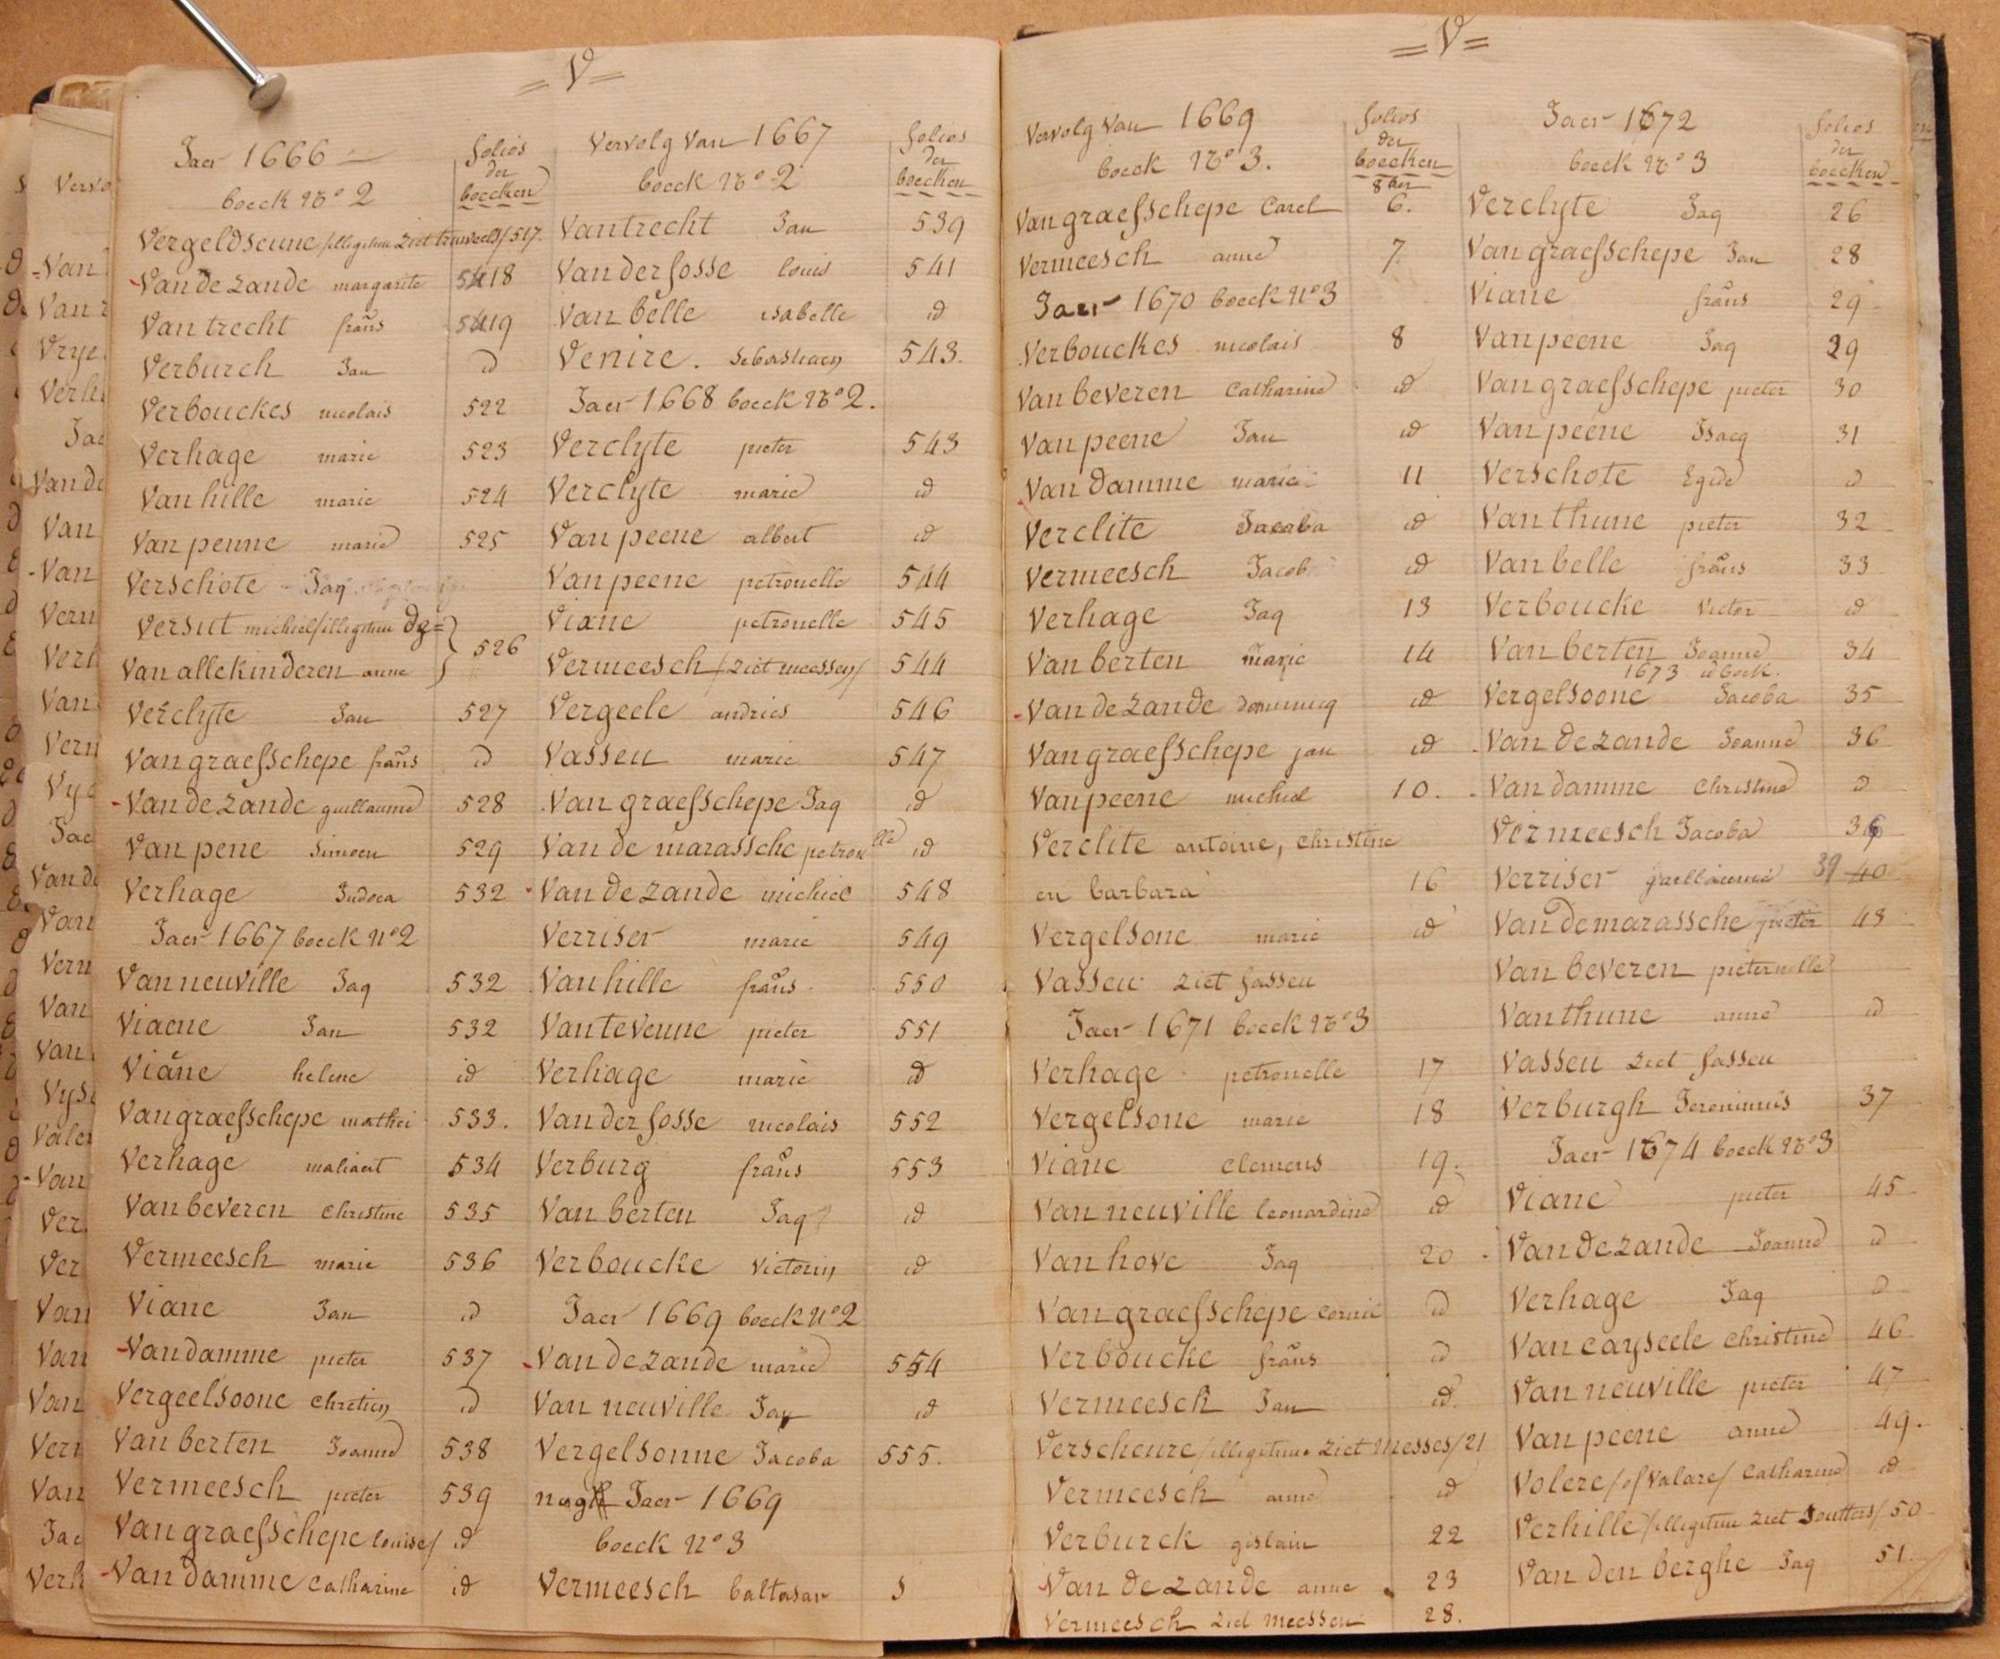 = V =
Jaer 1666
boeck No 2
folios
der
boecken
Vergeldseune /illegitime ziet 517.
Van de zande margarite 518
Van trecht frans 519
Verburch Jan id
Verbouckes nicolais 522
Verhage marie 523
Van hille marie 524
Van penne marie 525
Verschote Jaq
Versut michiel /illegitime
Van allekinderen anne 526
Verclyte Jan 527
Van graefschepe frans id
Van de zande guillaume 528
Van pene Simoen 529
Verhage Judoca 532
Jaer 1667 boeck No 2
Van neuville Jaq 532
Viaene Jan 532
Viane helene id
Van graefschepe mathei 533.
Verhage maliaert 534
Van beveren Christine 535
Vermeesch marie 536
Viane Jan id
Van damme pieter 537
Vergeelsoone Chretien id
Van berten Joanne 538
Vermeesch pieter 539
Van graefschepe louise/ id
Van damme Catharine id
Vervolg Van 1667
boeck No 2
folios
der
boecken
Van trecht Jan 539
Van der fosse louis 541
Van belle isabelle id
Venire. Sebastiaen 543.
Jaer 1668 boeck No 2.
Verclyte pieter 543
Verclyte marie id
Van peene albert id
Van peene petronelle 544
Viane petronelle 545
Vermeesch /ziet meessen/ 544
Vergeele andries 546
Vasseu marie 547
Van graefschepe Jaq id
Van de marassche petronelle id
Van de zande michiel 548
Verriser marie 549
Van hille frans 550
Van tevenne pieter 551
Verhage marie id
Van der fosse nicolais 552
Verburg frans 553
Van berten Jaq id
Verboucke Victorin id
Jaer 1669 boeck No 2
Van de zande marie 554
Van neuville Jaq id
Vergelsonne Jacoba 555.
nogh Jaer 1669
boeck No 3
Vermeesch baltasar 5
= V =
Vervolg Van 1669
boeck No 3.
folios
der
boecken
8ber
Van graefschepe Carel 6.
Vermeesch anne 7
Jaer 1670 boeck No 3
Verbouckes nicolais 8
Van beveren Catharine id
Van peene Jan id
Van damme marie 11
Verclite Jacoba id
Vermeesch Jacob id
Verhage Jaq 13
Van berten marie 14
Van de zande Dominicq id
Van graefschepe jan id
Van peene michiel 10.
Verclite antoine, Christine
en barbara 16
Vergelsone marie id
Vasseu ziet fasseu
Jaer 1671 boeck No 3
Verhage petronelle 17
Vergelsone marie 18
Viane Clemens 19.
Van neuville leonardine id
Van hove Jaq 20
Van graefschepe Cornil id
Verboucke frans id
Vermeesch Jan id.
Verscheure /illegitime ziet messes/ 21
Vermeesch anne id
Verburck gislain 22
Van de zande anne 23
Vermeesch ziet meessen 28.
Jaer 1672
boeck No 3
folios
der
boecken
Verclyte Jaq 26
Van graefschepe Jan 28
Viane frans 29
Van peene Jaq 29
Van graefschepe pieter 30
Van peene Isacq 31
Verschote Egide id
Van thune pieter 32
Van belle frans 33
Verboucke Victor id
Van berten Joanne 34
1673 id boek.
Vergelsoone Jacoba 35
Van de zande Joanne 36
Van damme Christine id
Vermeesch Jacoba 36
Verriser guillaume 39 40
Van de marassche pieter 43
Van beveren pieternelle
Van thune anne id
Vasseu ziet fasseu
Verburgh Jeronimus 37
Jaer 1674 boeck No 3
Viane pieter 45
Van de zande Joanne id
Verhage Jaq id
Van cayseele Christine 46
Van neuville pieter 47
Van peene anne 49.
Volere /of Valare/ Catharine id
Verhille /illegitime ziet Soutters/ 50
Van den berghe Jaq 51.